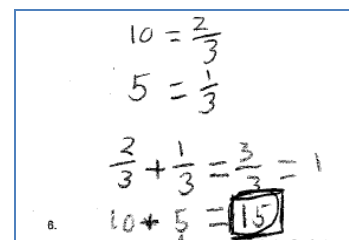 10 = 2/3
5 = 1/3
2/3 + 1/3 = 3/3 = 1
6. 10 + 5 = 15